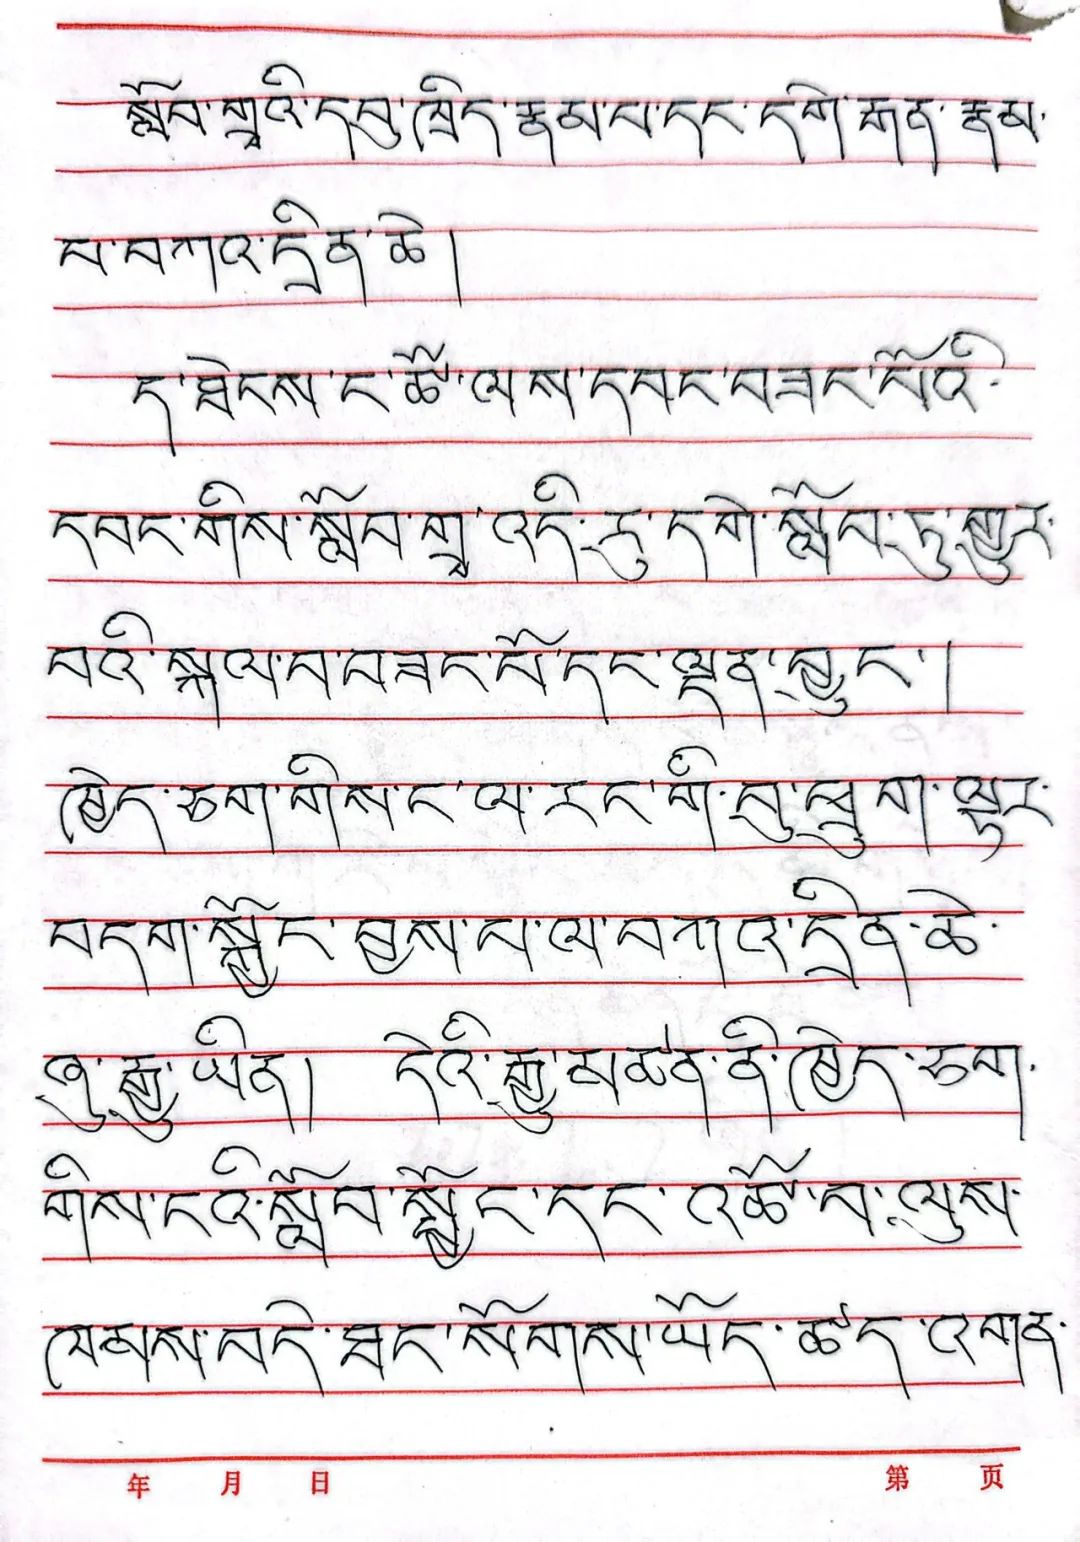 སློབ་གྲྭའི་དབུ་ཁྲིད་རྣམ་པ་དང་དགེ་རྒན་རྣམ་
པ་བཀའ་དྲིན་ཆེ།
ད་ཐེངས་ང་ཚོ་ལས་དབང་བཟང་པོའི་
དབང་གིས་སློབ་གྲྭ་འདི་རུ་དགེ་སློབ་ཏུ་གྱུར་
བའི་སྐལ་བ་བཟང་པོ་དང་ལྡན་བྱུང་།
ཁྱེད་ཅག་གིས་ང་ལ་རང་གི་བུ་ཕྲུག་ལྟར་
བདག་སྐྱོང་བྱས་པ་ལ་བཀའ་དྲིན་ཆེ་
ཞུ་རྒྱུ་ཡིན། དེའི་རྒྱུ་མཚན་ནི་ཁྱེད་ཅག་
གིས་ངའི་སློབ་སྦྱོང་དང་འཚོ་བ་ལུས་
ཁམས་བདེ་ཐང་སོགས་ཡོད་ཚད་འགན་
年 月 日 第 页